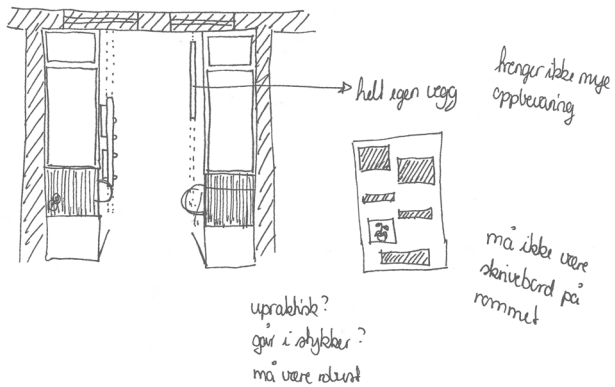 helt egen vegg
trenger ikke mye
oppbevaring
må ikke være
skrivebord på
rommet
upraktisk?
går i stykker?
må være robust